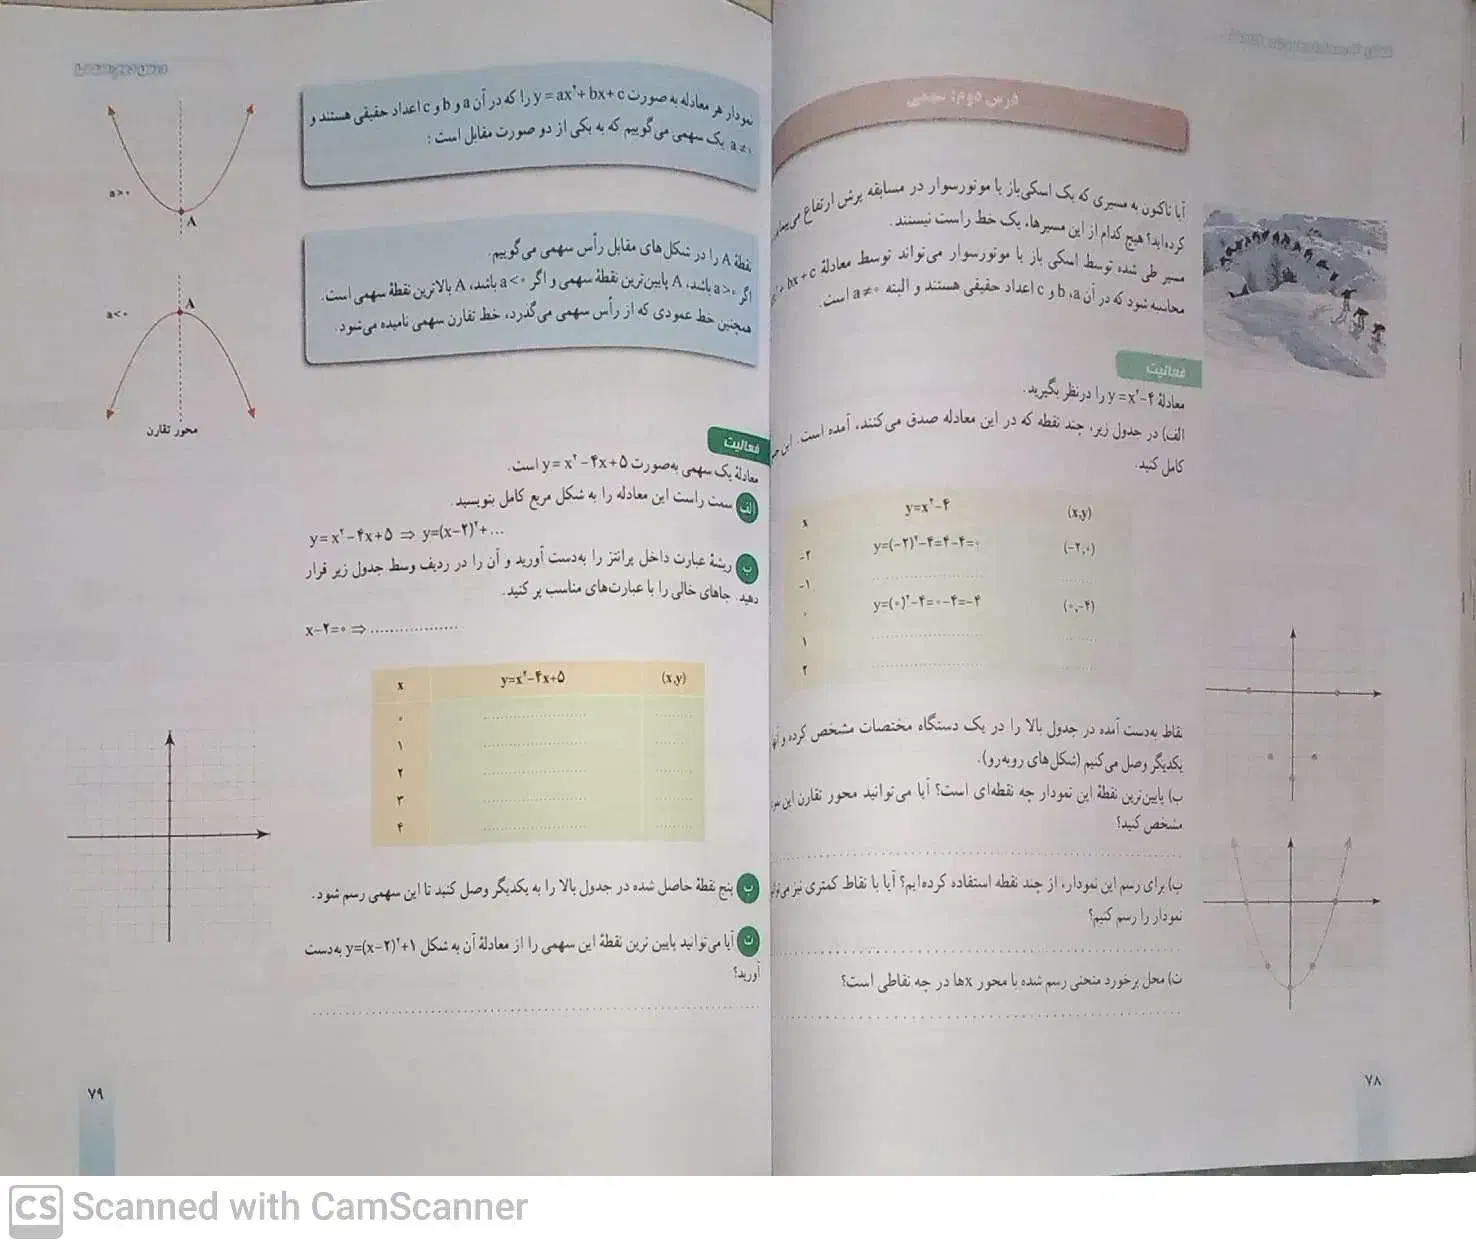 درس دوم: سهمی
آیا تاکنون به مسیری که یک اسکی‌باز یا موتورسوار در مسابقه پرش ارتفاع
کرده‌اید؟ هیچ کدام از این مسیرها، یک خط راست نیستند.
مسیر طی شده توسط اسکی باز یا موتورسوار می‌تواند توسط معادلهٔ bx + c
محاسبه شود که در آن a، b و c اعداد حقیقی هستند و البته a≠۰ است.
فعالیت
معادلهٔ y = x²−۴ را درنظر بگیرید.
الف) در جدول زیر، چند نقطه که در این معادله صدق می‌کنند، آمده است. این
کامل کنید.
x y=x²−۴ (x,y)
−۲ y=(−۲)²−۴=۴−۴=۰ (−۲,۰)
−۱ .................... ........
۰ y=(۰)²−۴=۰−۴=−۴ (۰,−۴)
۱ .................... ........
۲ .................... ........
نقاط به‌دست آمده در جدول بالا را در یک دستگاه مختصات مشخص کرده و
یکدیگر وصل می‌کنیم (شکل‌های روبه‌رو).
ب) پایین‌ترین نقطهٔ این نمودار چه نقطه‌ای است؟ آیا می‌توانید محور تقارن این
مشخص کنید؟
پ) برای رسم این نمودار، از چند نقطه استفاده کرده‌ایم؟ آیا با نقاط کمتری نیز
نمودار را رسم کنیم؟
ت) محل برخورد منحنی رسم شده با محور xها در چه نقاطی است؟
۷۸
نمودار هر معادله به صورت y = ax²+ bx+ c را که در آن a و b و c اعداد حقیقی هستند و
a ≠۰ یک سهمی می‌گوییم که به یکی از دو صورت مقابل است :
a>۰
A
نقطهٔ A را در شکل‌های مقابل رأس سهمی می‌گوییم.
اگر a>۰ باشد، A پایین‌ترین نقطهٔ سهمی و اگر a<۰ باشد، A بالاترین نقطهٔ سهمی است.
همچنین خط عمودی که از رأس سهمی می‌گذرد، خط تقارن سهمی نامیده می‌شود.
A
a<۰
محور تقارن
فعالیت
معادلهٔ یک سهمی به‌صورت y= x²−۴x+۵ است.
الف سمت راست این معادله را به شکل مربع کامل بنویسید.
y= x²−۴x+۵ ⇒ y=(x−۲)²+...
ب ریشهٔ عبارت داخل پرانتز را به‌دست آورید و آن را در ردیف وسط جدول زیر قرار
دهید. جاهای خالی را با عبارت‌های مناسب پر کنید.
x−۲=۰ ⇒ ..................
x y=x²−۴x+۵ (x,y)
۰ .................... ........
۱ .................... ........
۲ .................... ........
۳ .................... ........
۴ .................... ........
پ پنج نقطهٔ حاصل شده در جدول بالا را به یکدیگر وصل کنید تا این سهمی رسم شود.
ت آیا می‌توانید پایین ترین نقطهٔ این سهمی را از معادلهٔ آن به شکل y=(x−۲)²+۱ به‌دست
آورید؟
۷۹
CS Scanned with CamScanner